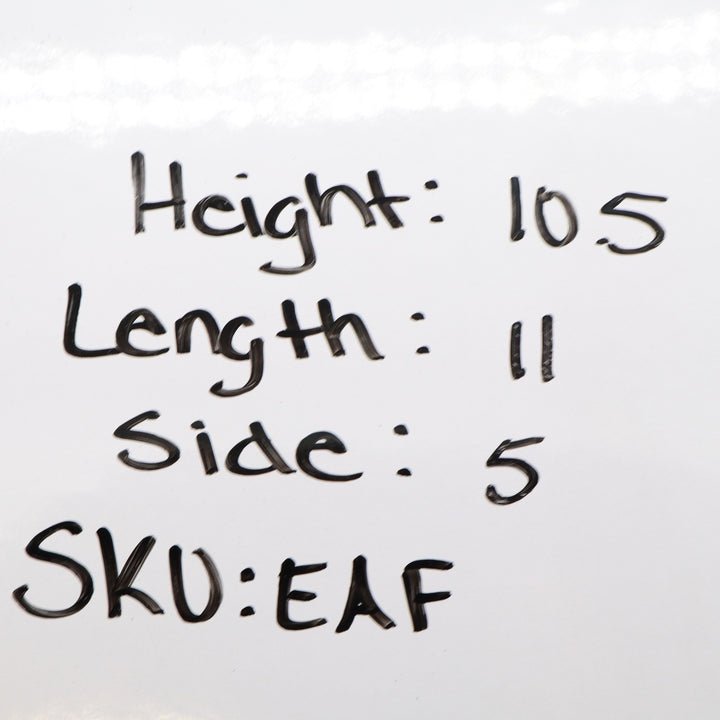 Height: 10.5
Length: 11
Side: 5
SKU:EAF